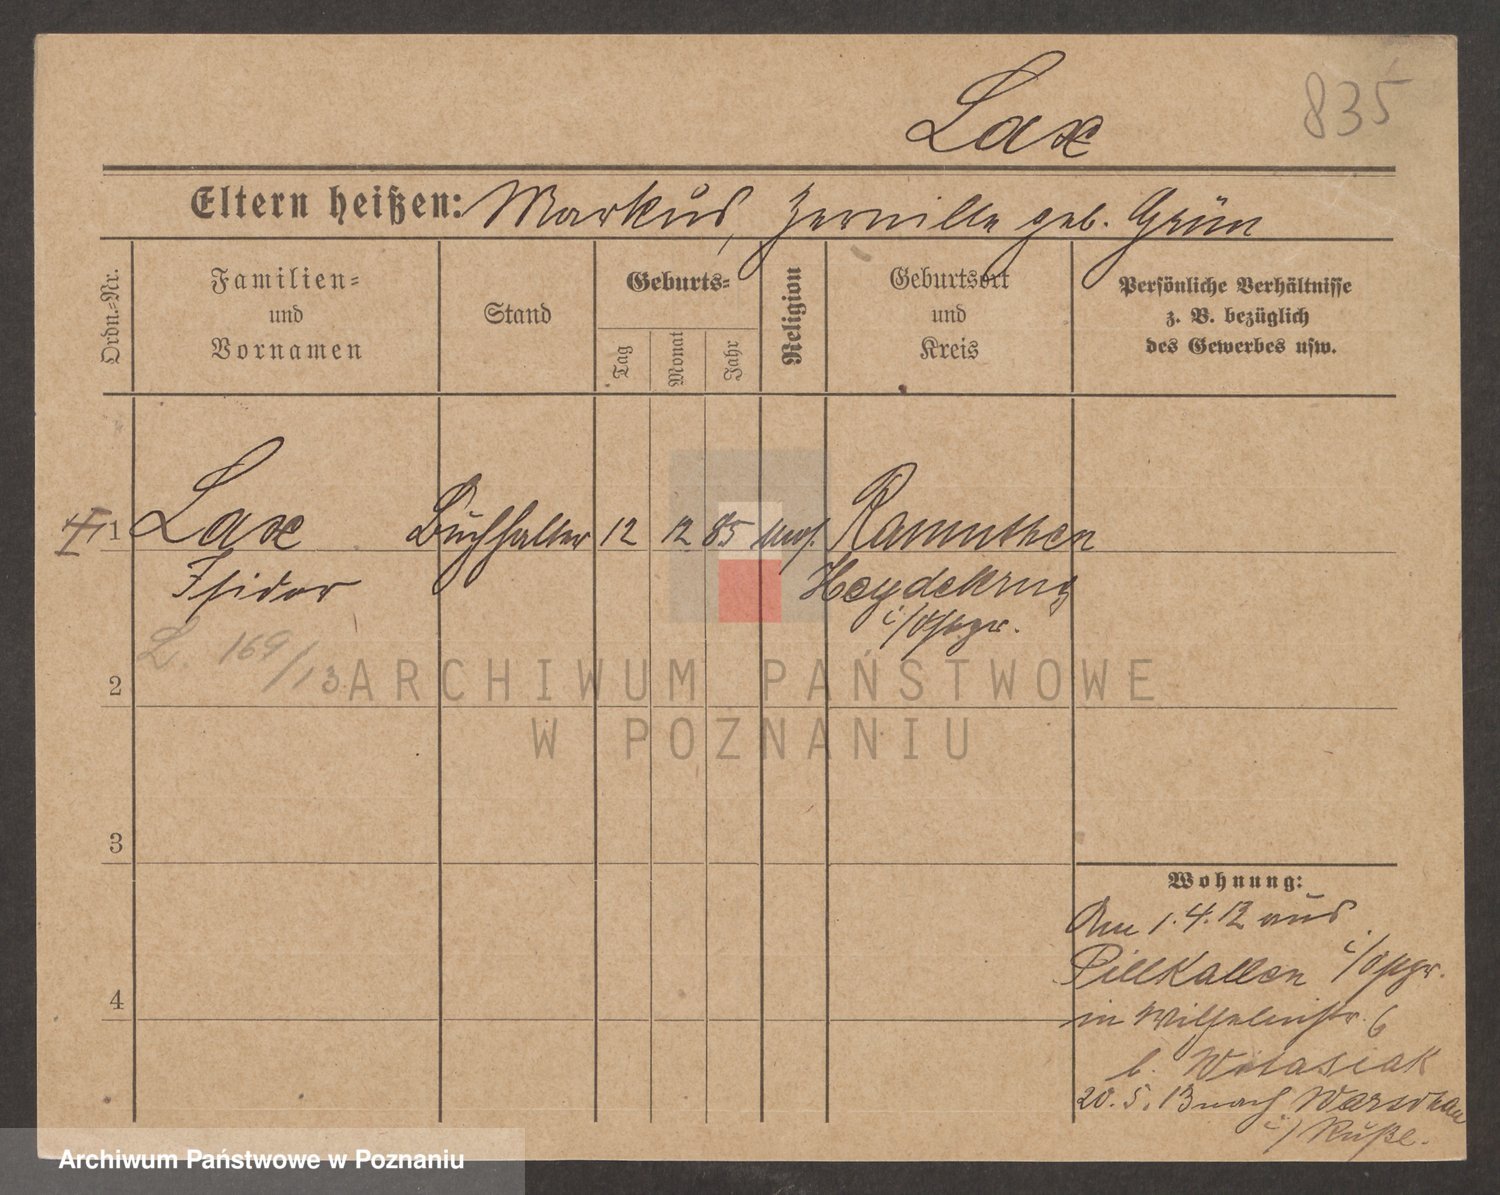 Lax
835
Eltern heißen: Markus, geb. Grün
Ordn.-Nr.
Familien-
und
Vornamen
Stand
Geburts-
Tag
Monat
Jahr
Religion
Geburtsort
und
Kreis
Persönliche Verhältnisse
z. B. bezüglich
des Gewerbes usw.
1 Lax Buchhalter 12 12 85 mos. Ramutten
Isidor Heydekrug
i/Ostpr.
L. 169/13
2
3
4
Wohnung:
Am 1.4.12 aus
Pillkallen i/Ostpr.
in Wilhelmstr. 6
b. Witasiak
20.5.13 nach Warschau
i/Rußl.
ARCHIWUM PAŃSTWOWE
W POZNANIU
Archiwum Państwowe w Poznaniu